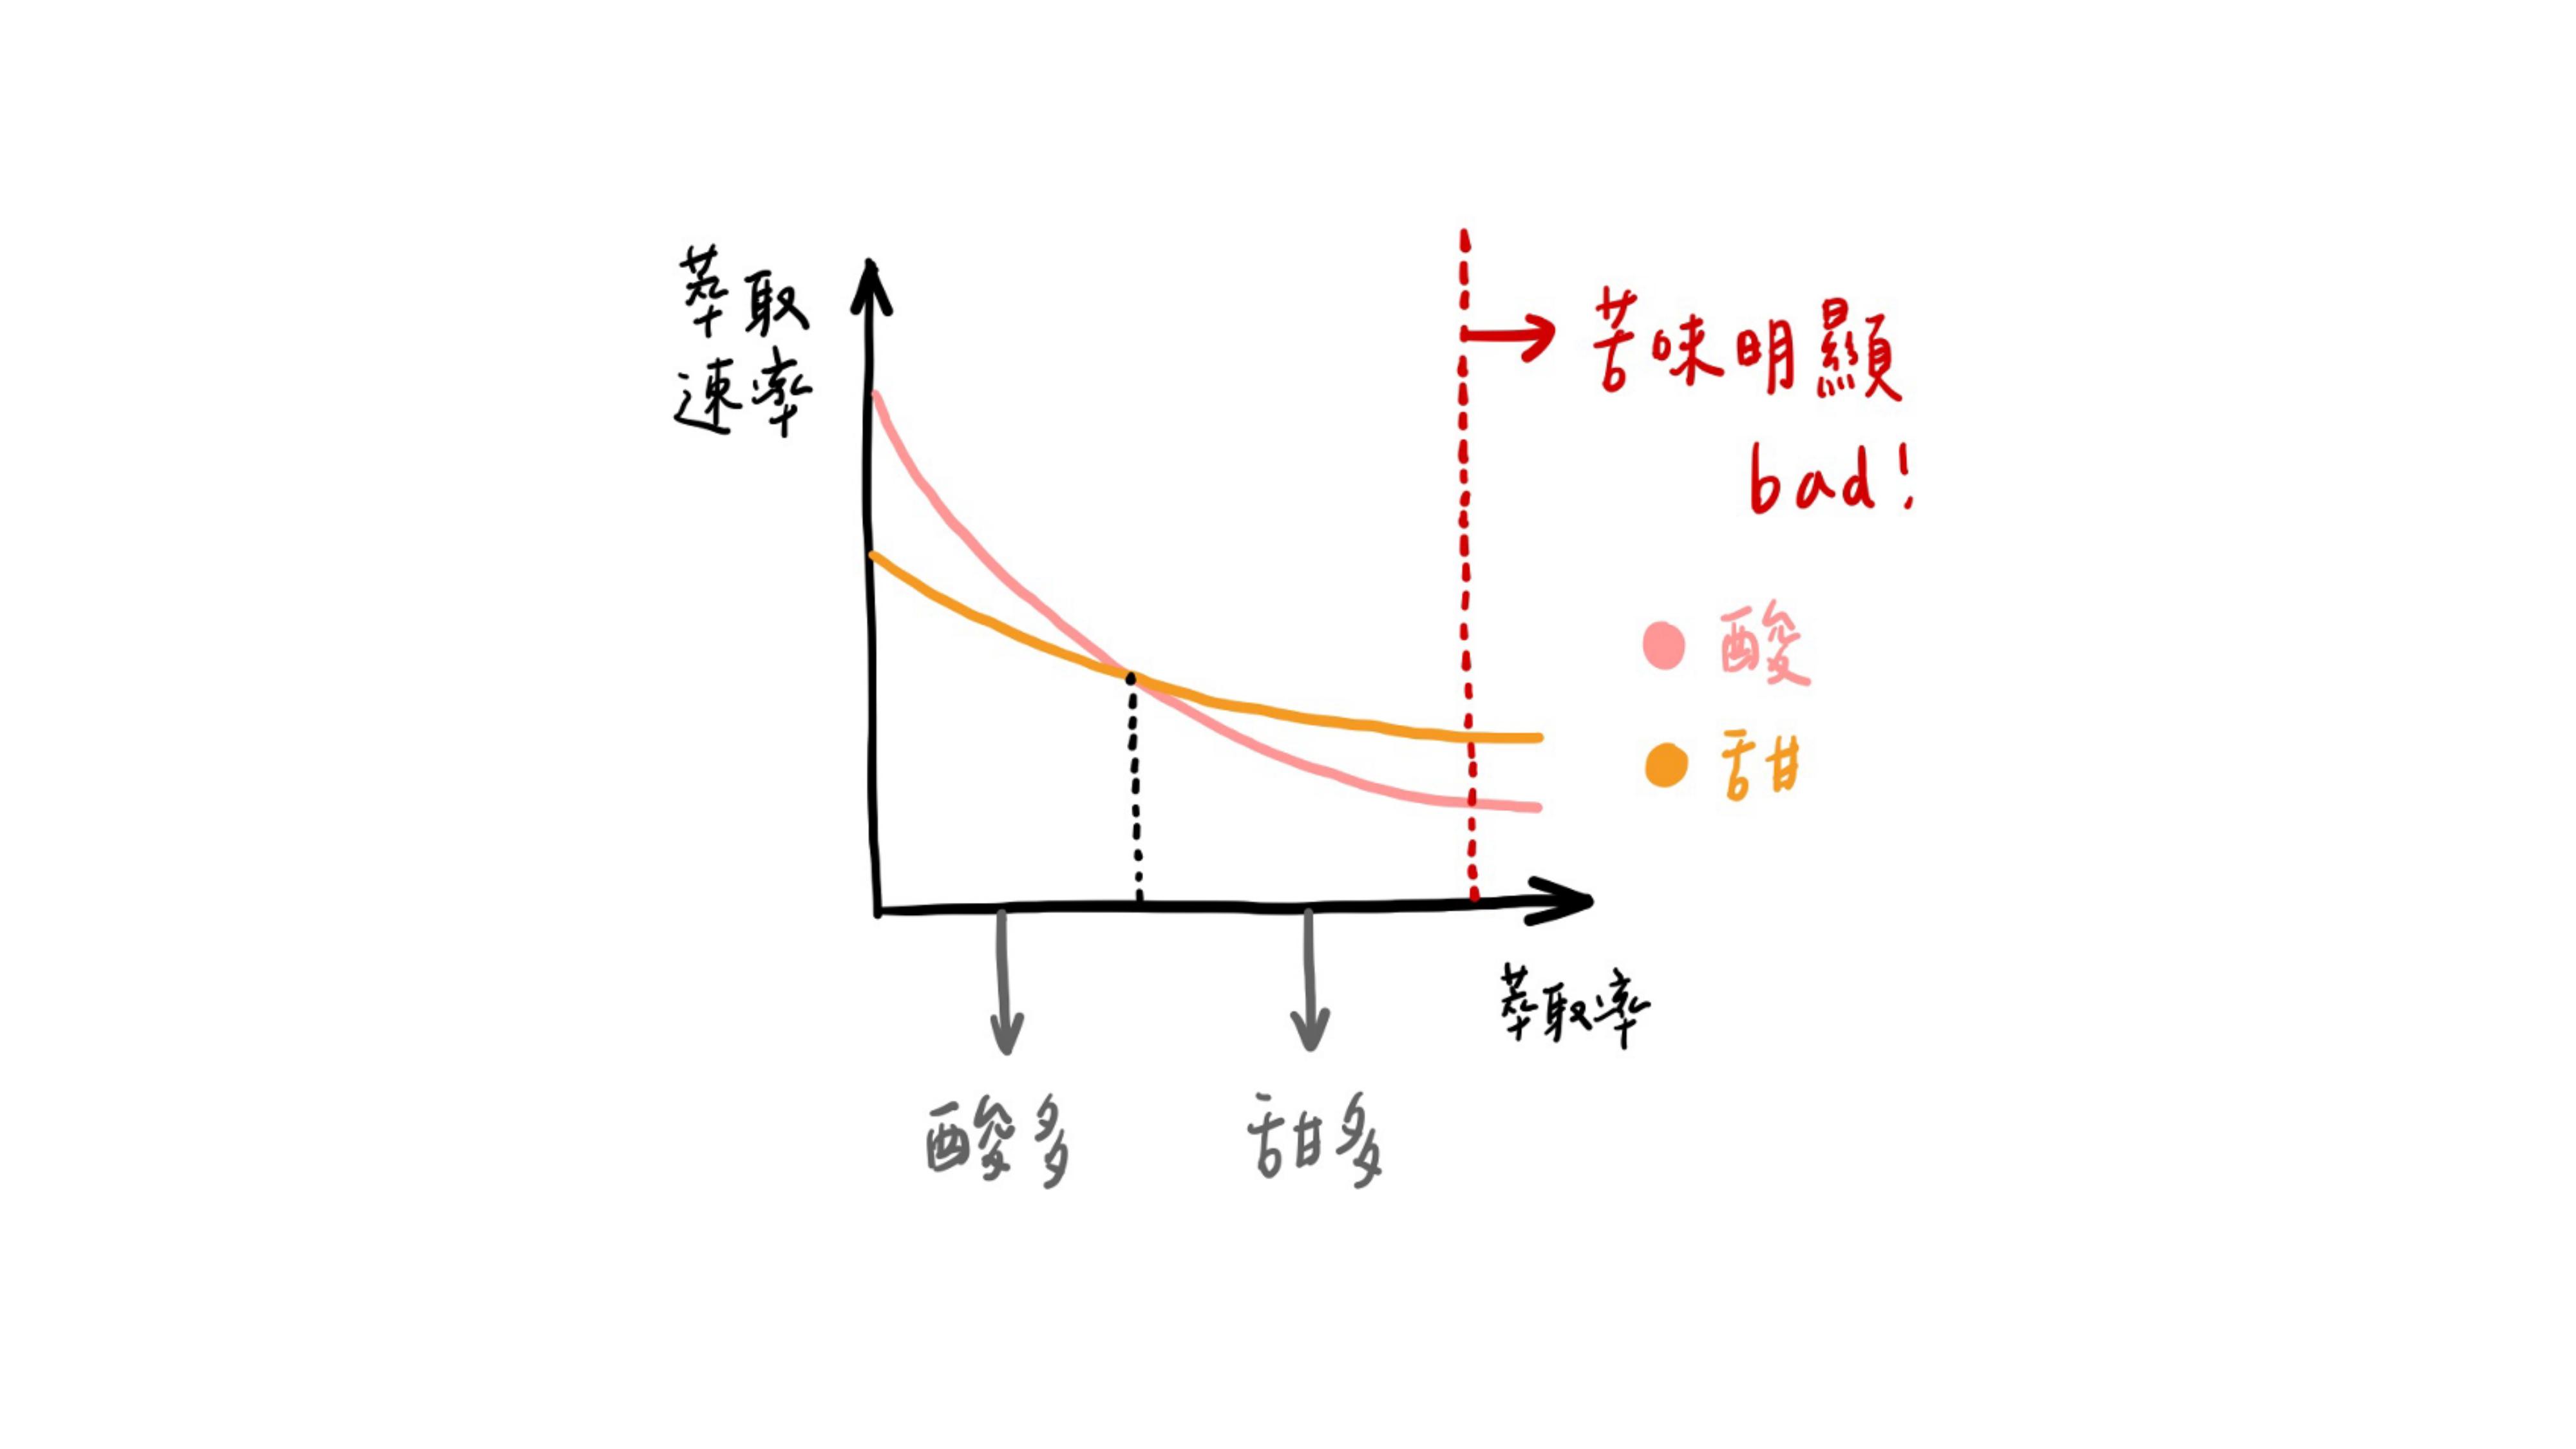 萃取
速率
苦味明顯
bad!
酸
甜
萃取率
酸多
甜多